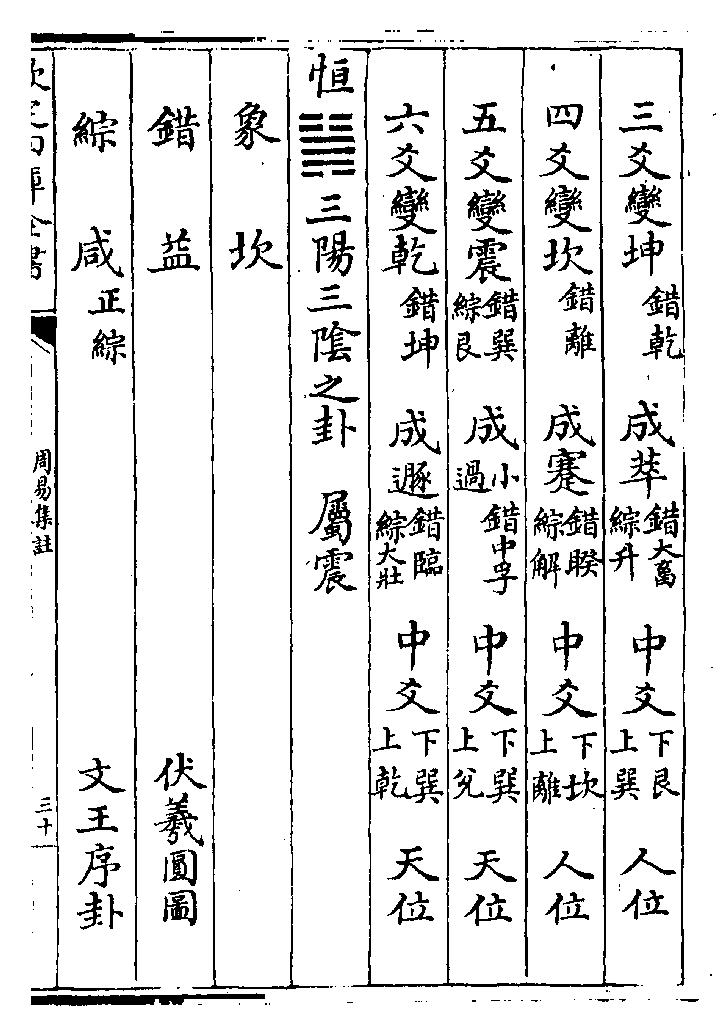 三爻變坤 錯乾 成萃 錯大畜綜升 中爻 下艮上巽 人位
四爻變坎 錯離 成蹇 錯睽綜解 中爻 下坎上離 人位
五爻變震 錯巽綜艮 成小過 錯中孚 中爻 下巽上兌 天位
六爻變乾 錯坤 成遯 錯臨綜大壯 中爻 下巽上乾 天位
恒䷟三陽三陰之卦 屬震
象 坎
錯 益 伏羲圓圖
綜 咸 正綜 文王序卦
欽定四庫全書 周易集註 三十